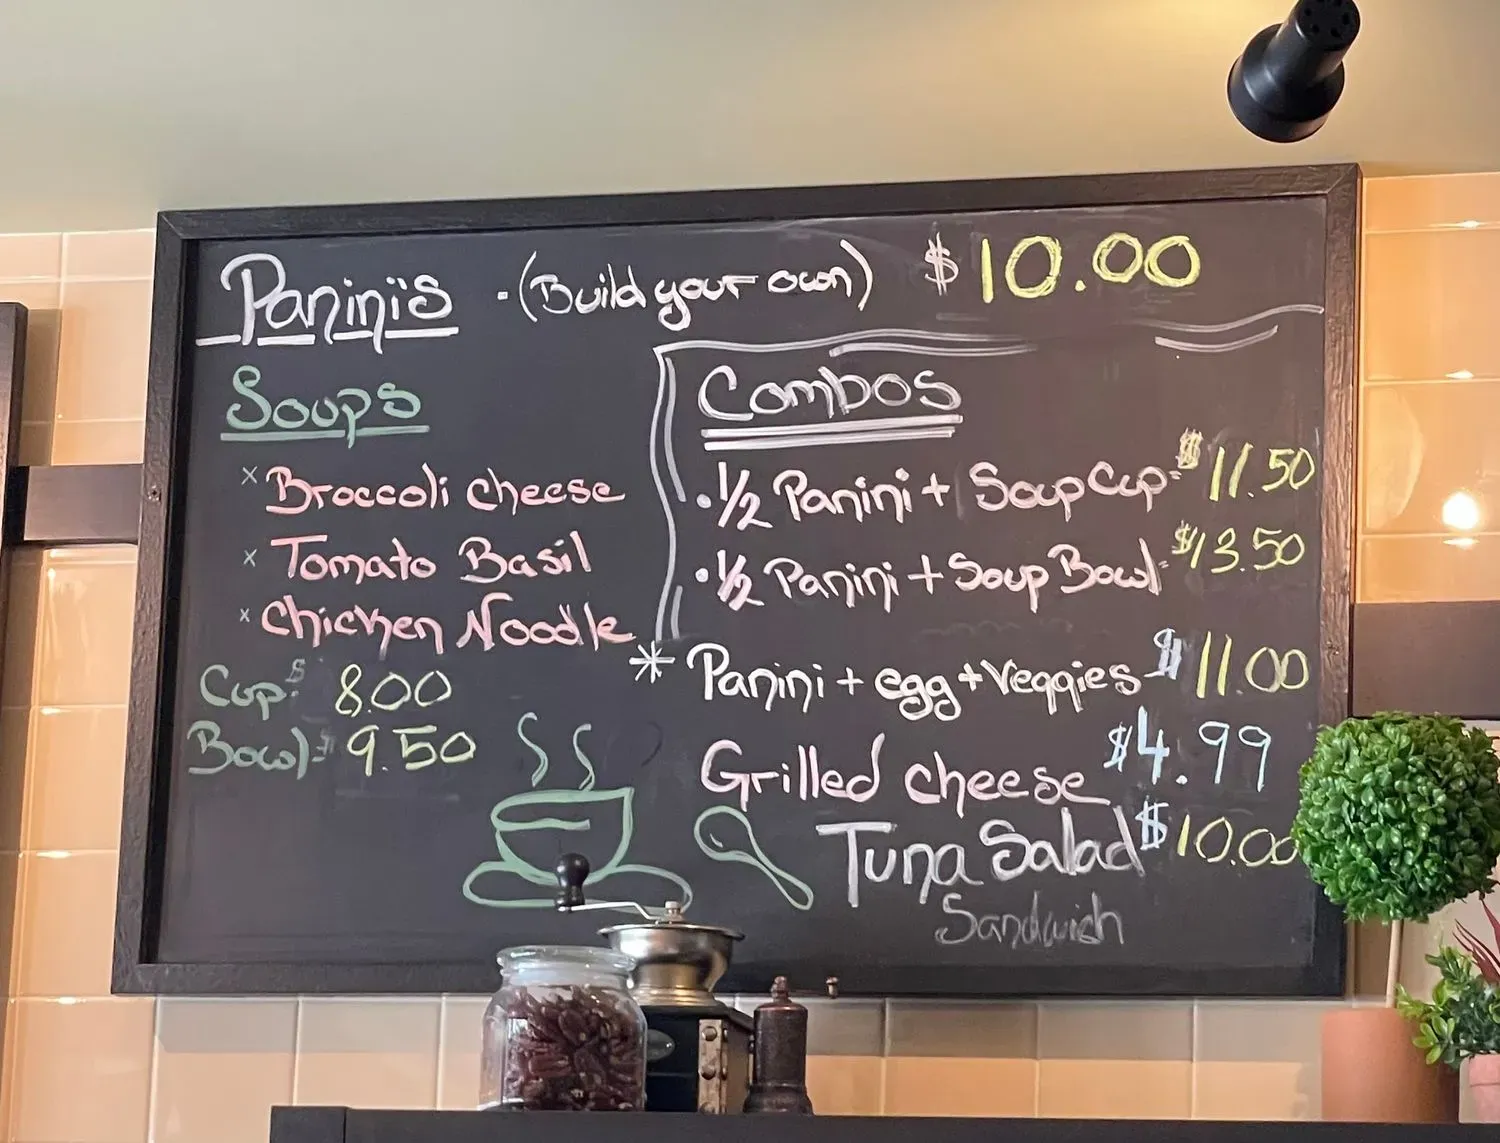 Panini's · (Build your own) $10.00
Soups
x Broccoli cheese
x Tomato Basil
x Chicken Noodle
Cup: $ 8.00
Bowl: $ 9.50
Combos
· 1/2 Panini + Soup Cup = $ 11.50
· 1/2 Panini + Soup Bowl = $13.50
* Panini + egg + Veggies - $ 11.00
Grilled cheese $4.99
Tuna Salad $10.00
Sandwich